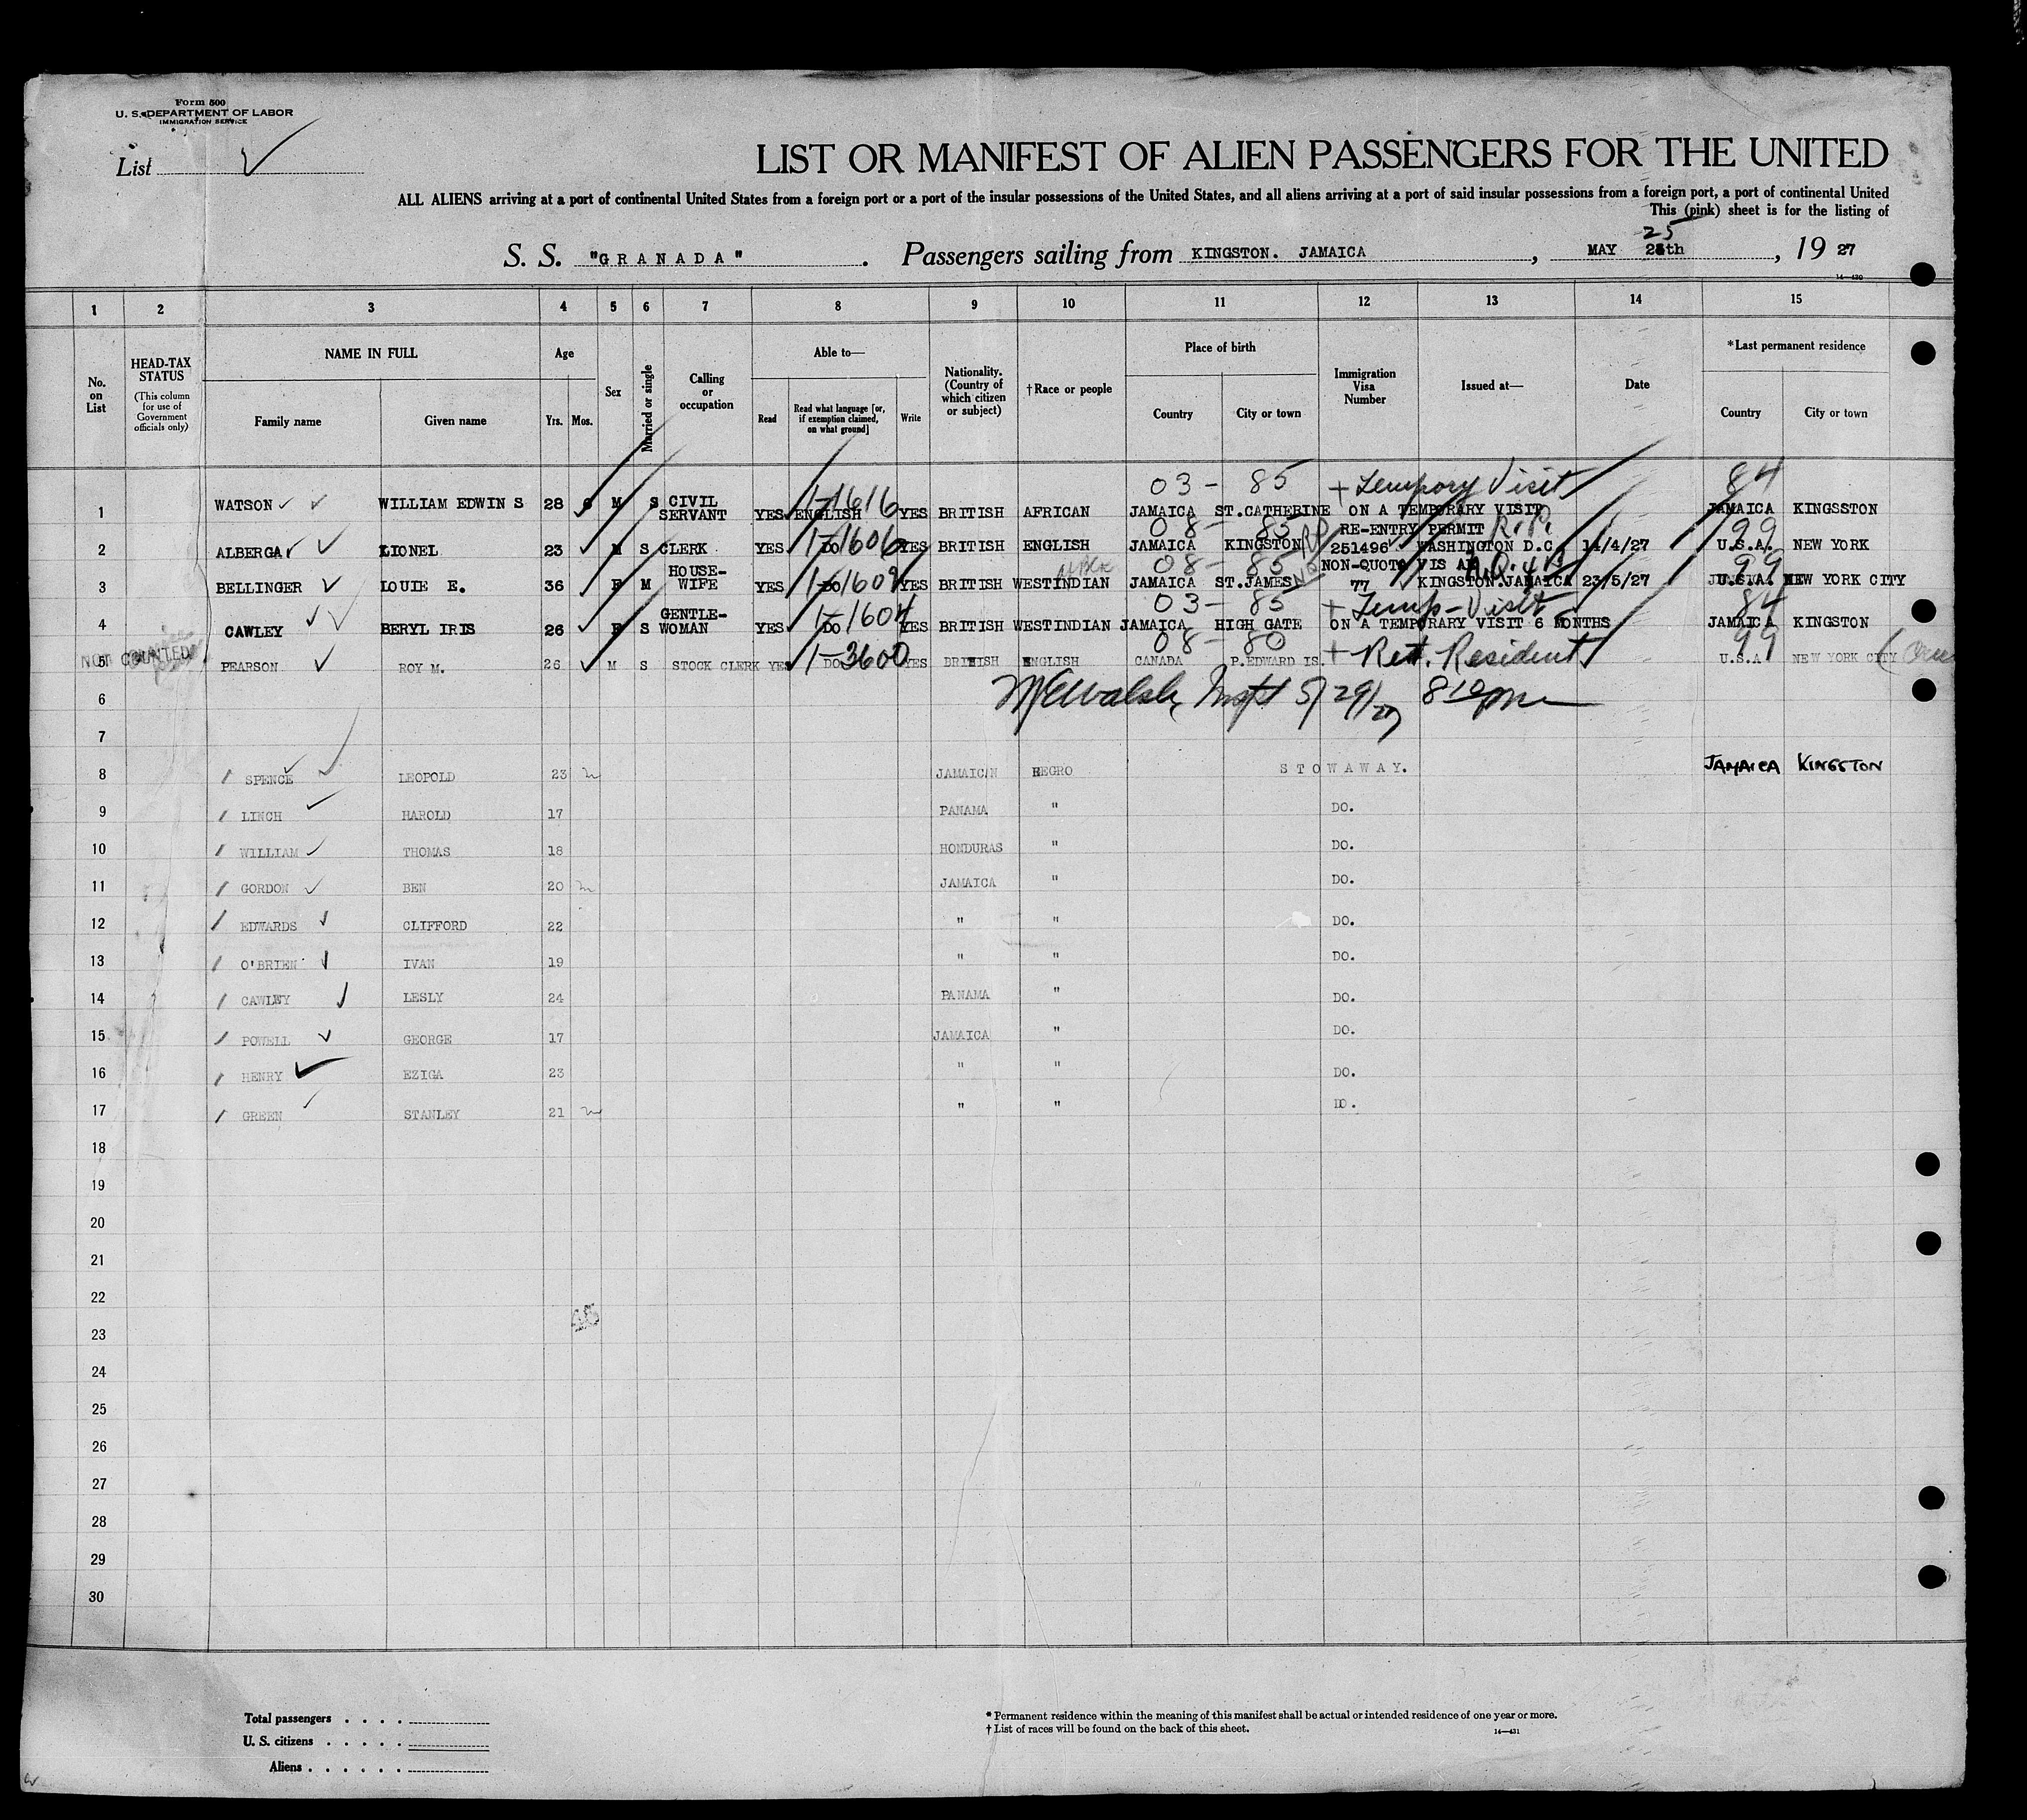 Form 500
U. S. DEPARTMENT OF LABOR
IMMIGRATION SERVICE
List
LIST OR MANIFEST OF ALIEN PASSENGERS FOR THE UNITED
ALL ALIENS arriving at a port of continental United States from a foreign port or a port of the insular possessions of the United States, and all aliens arriving at a port of said insular possessions from a foreign port, a port of continental United
This (pink) sheet is for the listing of
25
S. S. "GRANADA". Passengers sailing from KINGSTON. JAMAICA, MAY 25th, 19 27
14—430
1 2 3 4 5 6 7 8 9 10 11 12 13 14 15
No. on List
HEAD-TAX STATUS
(This column for use of Government officials only)
NAME IN FULL
Family name Given name
Age
Yrs. Mos.
Sex
Married or single
Calling or occupation
Able to—
Read
Read what language [or, if exemption claimed, on what ground]
Write
Nationality. (Country of which citizen or subject)
†Race or people
Place of birth
Country City or town
Immigration Visa Number
Issued at—
Date
*Last permanent residence
Country City or town
03 - 85 + Tempory Visit 84
1 WATSON WILLIAM EDWIN S 28 M S CIVIL SERVANT YES ENGLISH 1-1616 YES BRITISH AFRICAN JAMAICA ST.CATHERINE ON A TEMPORARY VISIT JAMAICA KINGSSTON
08 - 85 RP RE-ENTRY PERMIT R.P. 99
2 ALBERGA LIONEL 23 M S CLERK YES DO 1-1606 YES BRITISH ENGLISH JAMAICA KINGSTON 251496 WASHINGTON D.C 14/4/27 U.S.A. NEW YORK
08 - 85 NON-QUOTO VIS N.Q. 4B 99
3 BELLINGER LOUIE E. 36 F M HOUSE-WIFE YES DO 1-1609 YES BRITISH WESTINDIAN JAMAICA ST.JAMES 77 KINGSTON.JAMAICA 23/5/27 U.S.A. NEW YORK CITY
03 - 85 + Temp-Visit 84
4 CAWLEY BERYL IRIS 26 F S GENTLE-WOMAN YES DO 1-1604 YES BRITISH WESTINDIAN JAMAICA HIGH GATE ON A TEMPORARY VISIT 6 MONTHS JAMAICA KINGSTON
08 - 80 + Ret. Resident 99
NOT COUNTED
5 PEARSON ROY M. 26 M S STOCK CLERK YES DO 1-3600 YES BRITISH ENGLISH CANADA P.EDWARD IS. U.S.A NEW YORK CITY
6 5/29/27 8 10 pm
7
8 SPENCE LEOPOLD 23 JAMAICAN NEGRO STOWAWAY. JAMAICA KINGSTON
9 LINCH HAROLD 17 PANAMA " DO.
10 WILLIAM THOMAS 18 HONDURAS " DO.
11 GORDON BEN 20 JAMAICA " DO.
12 EDWARDS CLIFFORD 22 " " DO.
13 O'BRIEN IVAN 19 " " DO.
14 CAWLEY LESLY 24 PANAMA " DO.
15 POWELL GEORGE 17 JAMAICA " DO.
16 HENRY EZIGA 23 " " DO.
17 GREEN STANLEY 21 " " DO.
18
19
20
21
22
23
24
25
26
27
28
29
30
Total passengers . . . .
U. S. citizens . . . . .
Aliens . . . . . .
* Permanent residence within the meaning of this manifest shall be actual or intended residence of one year or more.
† List of races will be found on the back of this sheet.
14—431